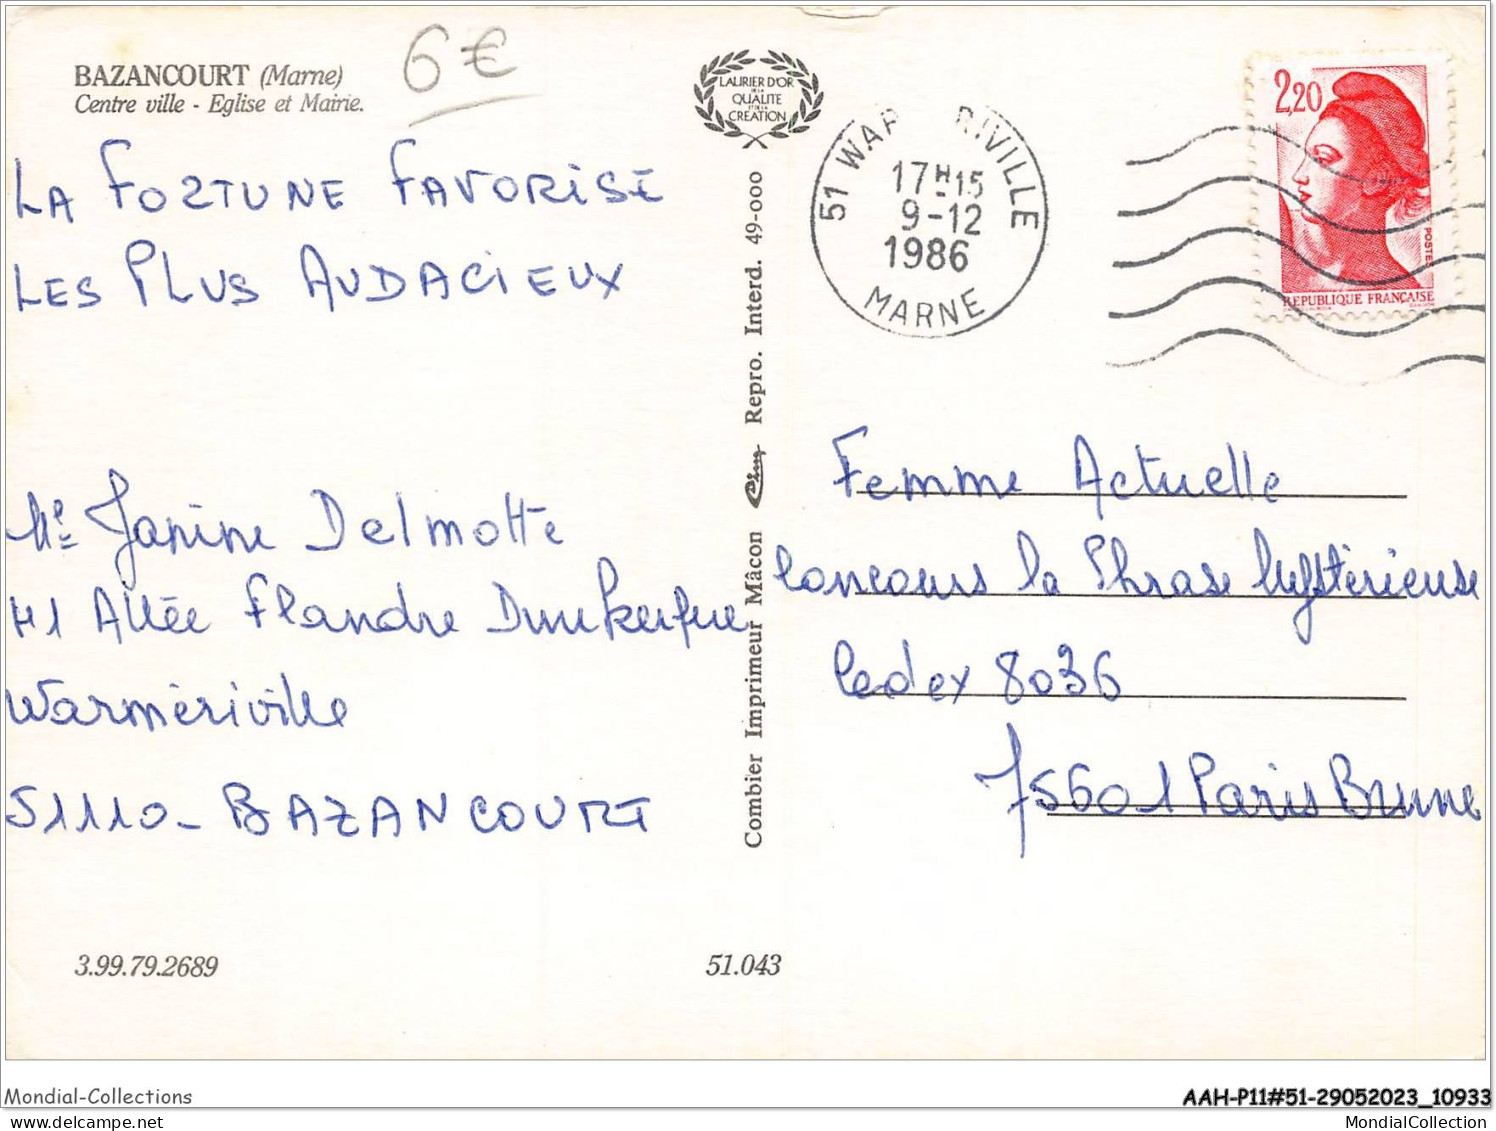 BAZANCOURT (Marne)
Centre ville - Eglise et Mairie.
6€
LAURIER D'OR
DE LA
QUALITE
ET DE LA
CREATION
51 WAR RIVILLE
17H15
9-12
1986
MARNE
2,20
POSTES
REPUBLIQUE FRANÇAISE
LA FORTUNE FAVORISE
LES PLUS AUDACIEUX
Me Janine Delmotte
H1 Allée Flandre Dunkerque
Warmériville
51110 - BAZANCOURT
Combier Imprimeur Mâcon Repro. Interd. 49-000
Femme Actuelle
Concours la Phrase Mystérieuse
Cedex 8036
75601 Paris Brune
3.99.79.2689
51.043
Mondial-Collections
AAH-P11#51-29052023_10933
MondialCollection